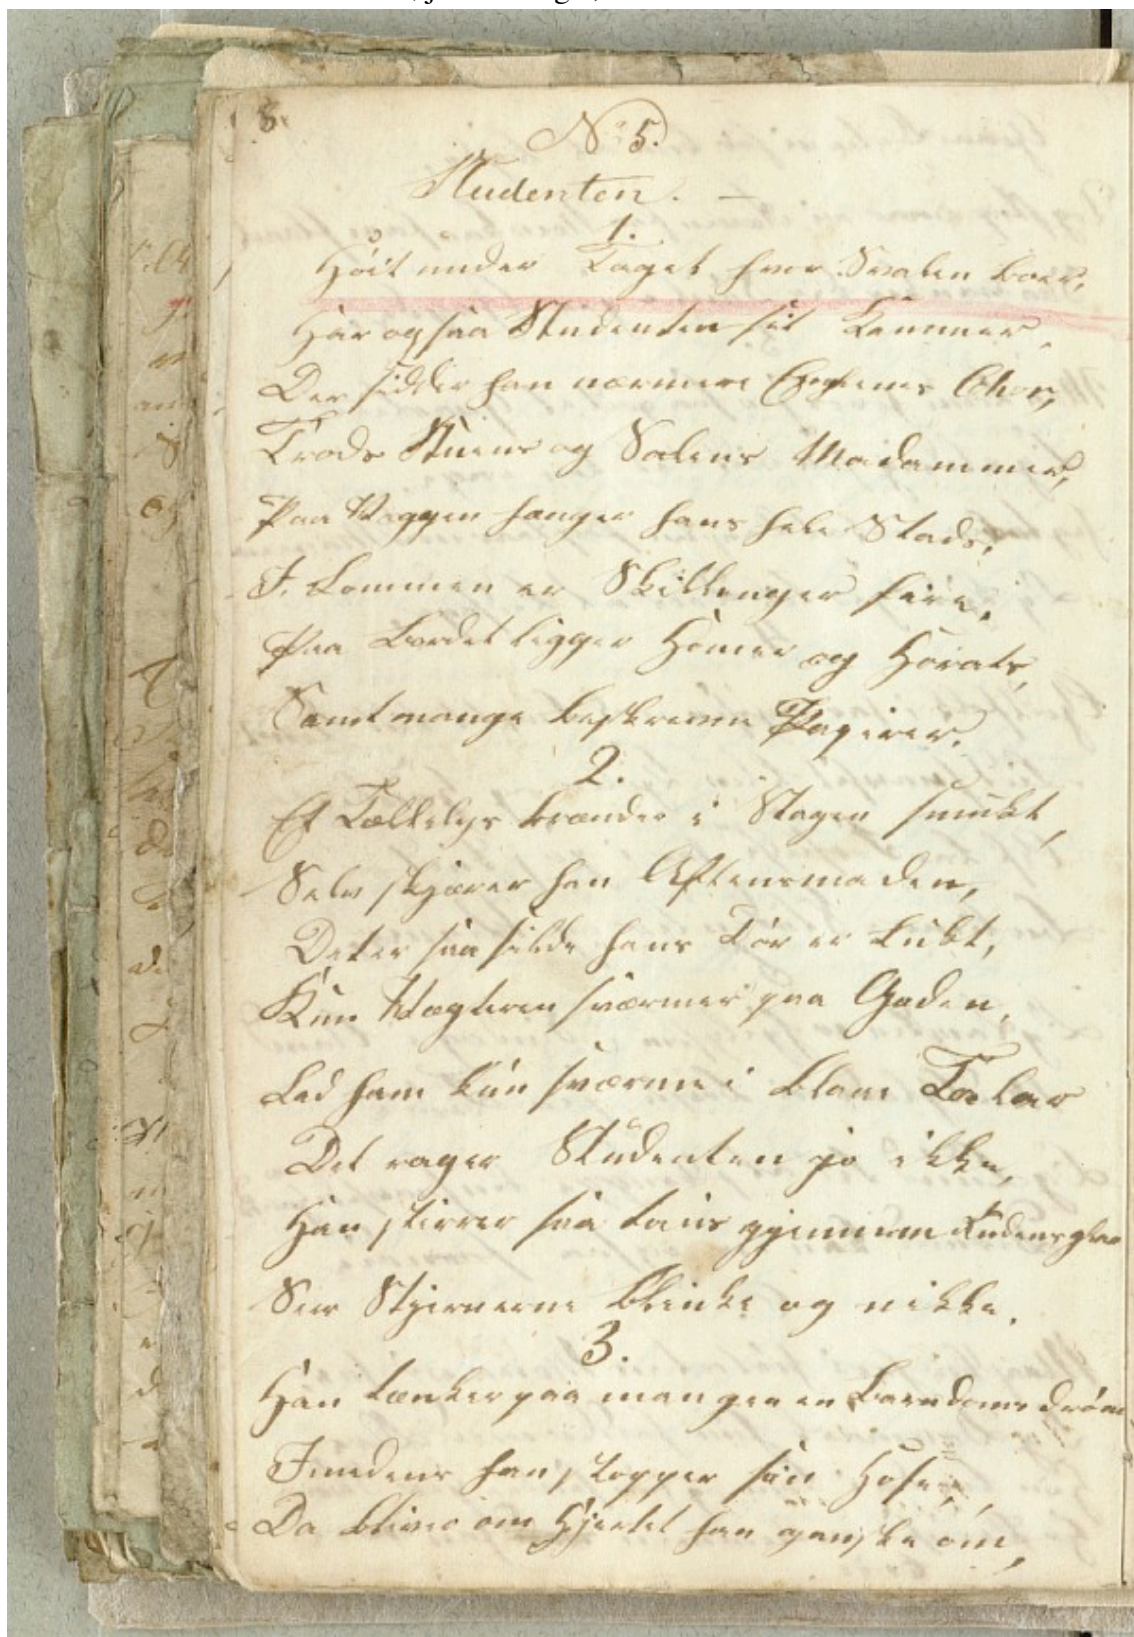 8.
No 5.
Studenten. —
1.
Höit under Taget hvor Svalen boer,
Har ogsaa Studenten sit Kammer,
Der sidder han nærmere Englenes Chor,
Trods Stuens og Salens Madammer,
Paa Væggen hænger hans hele Stads,
I Lommen er Skillenger fire,
Paa Bordet ligger Homer og Horats,
Samt mange beskrevne Papirer.
2.
Et Tællelys brænder i Stagen smukt,
Selv skjærer han Aftensmaden,
Det er saa silde hans Dör er lukt,
Kun Vægteren sværmer paa Gaden,
Lad ham kun sværme i blaae Talar
Det rager Studenten jo ikke,
Han stirrer saa taus gjennem Rudens glas
Seer Stjernerne blinke og nikke.
3.
Han tænker paa mangen en Barndoms dröm
Imedens han stopper sin Hose,
Da bliver om Hjertet han ganske öm,